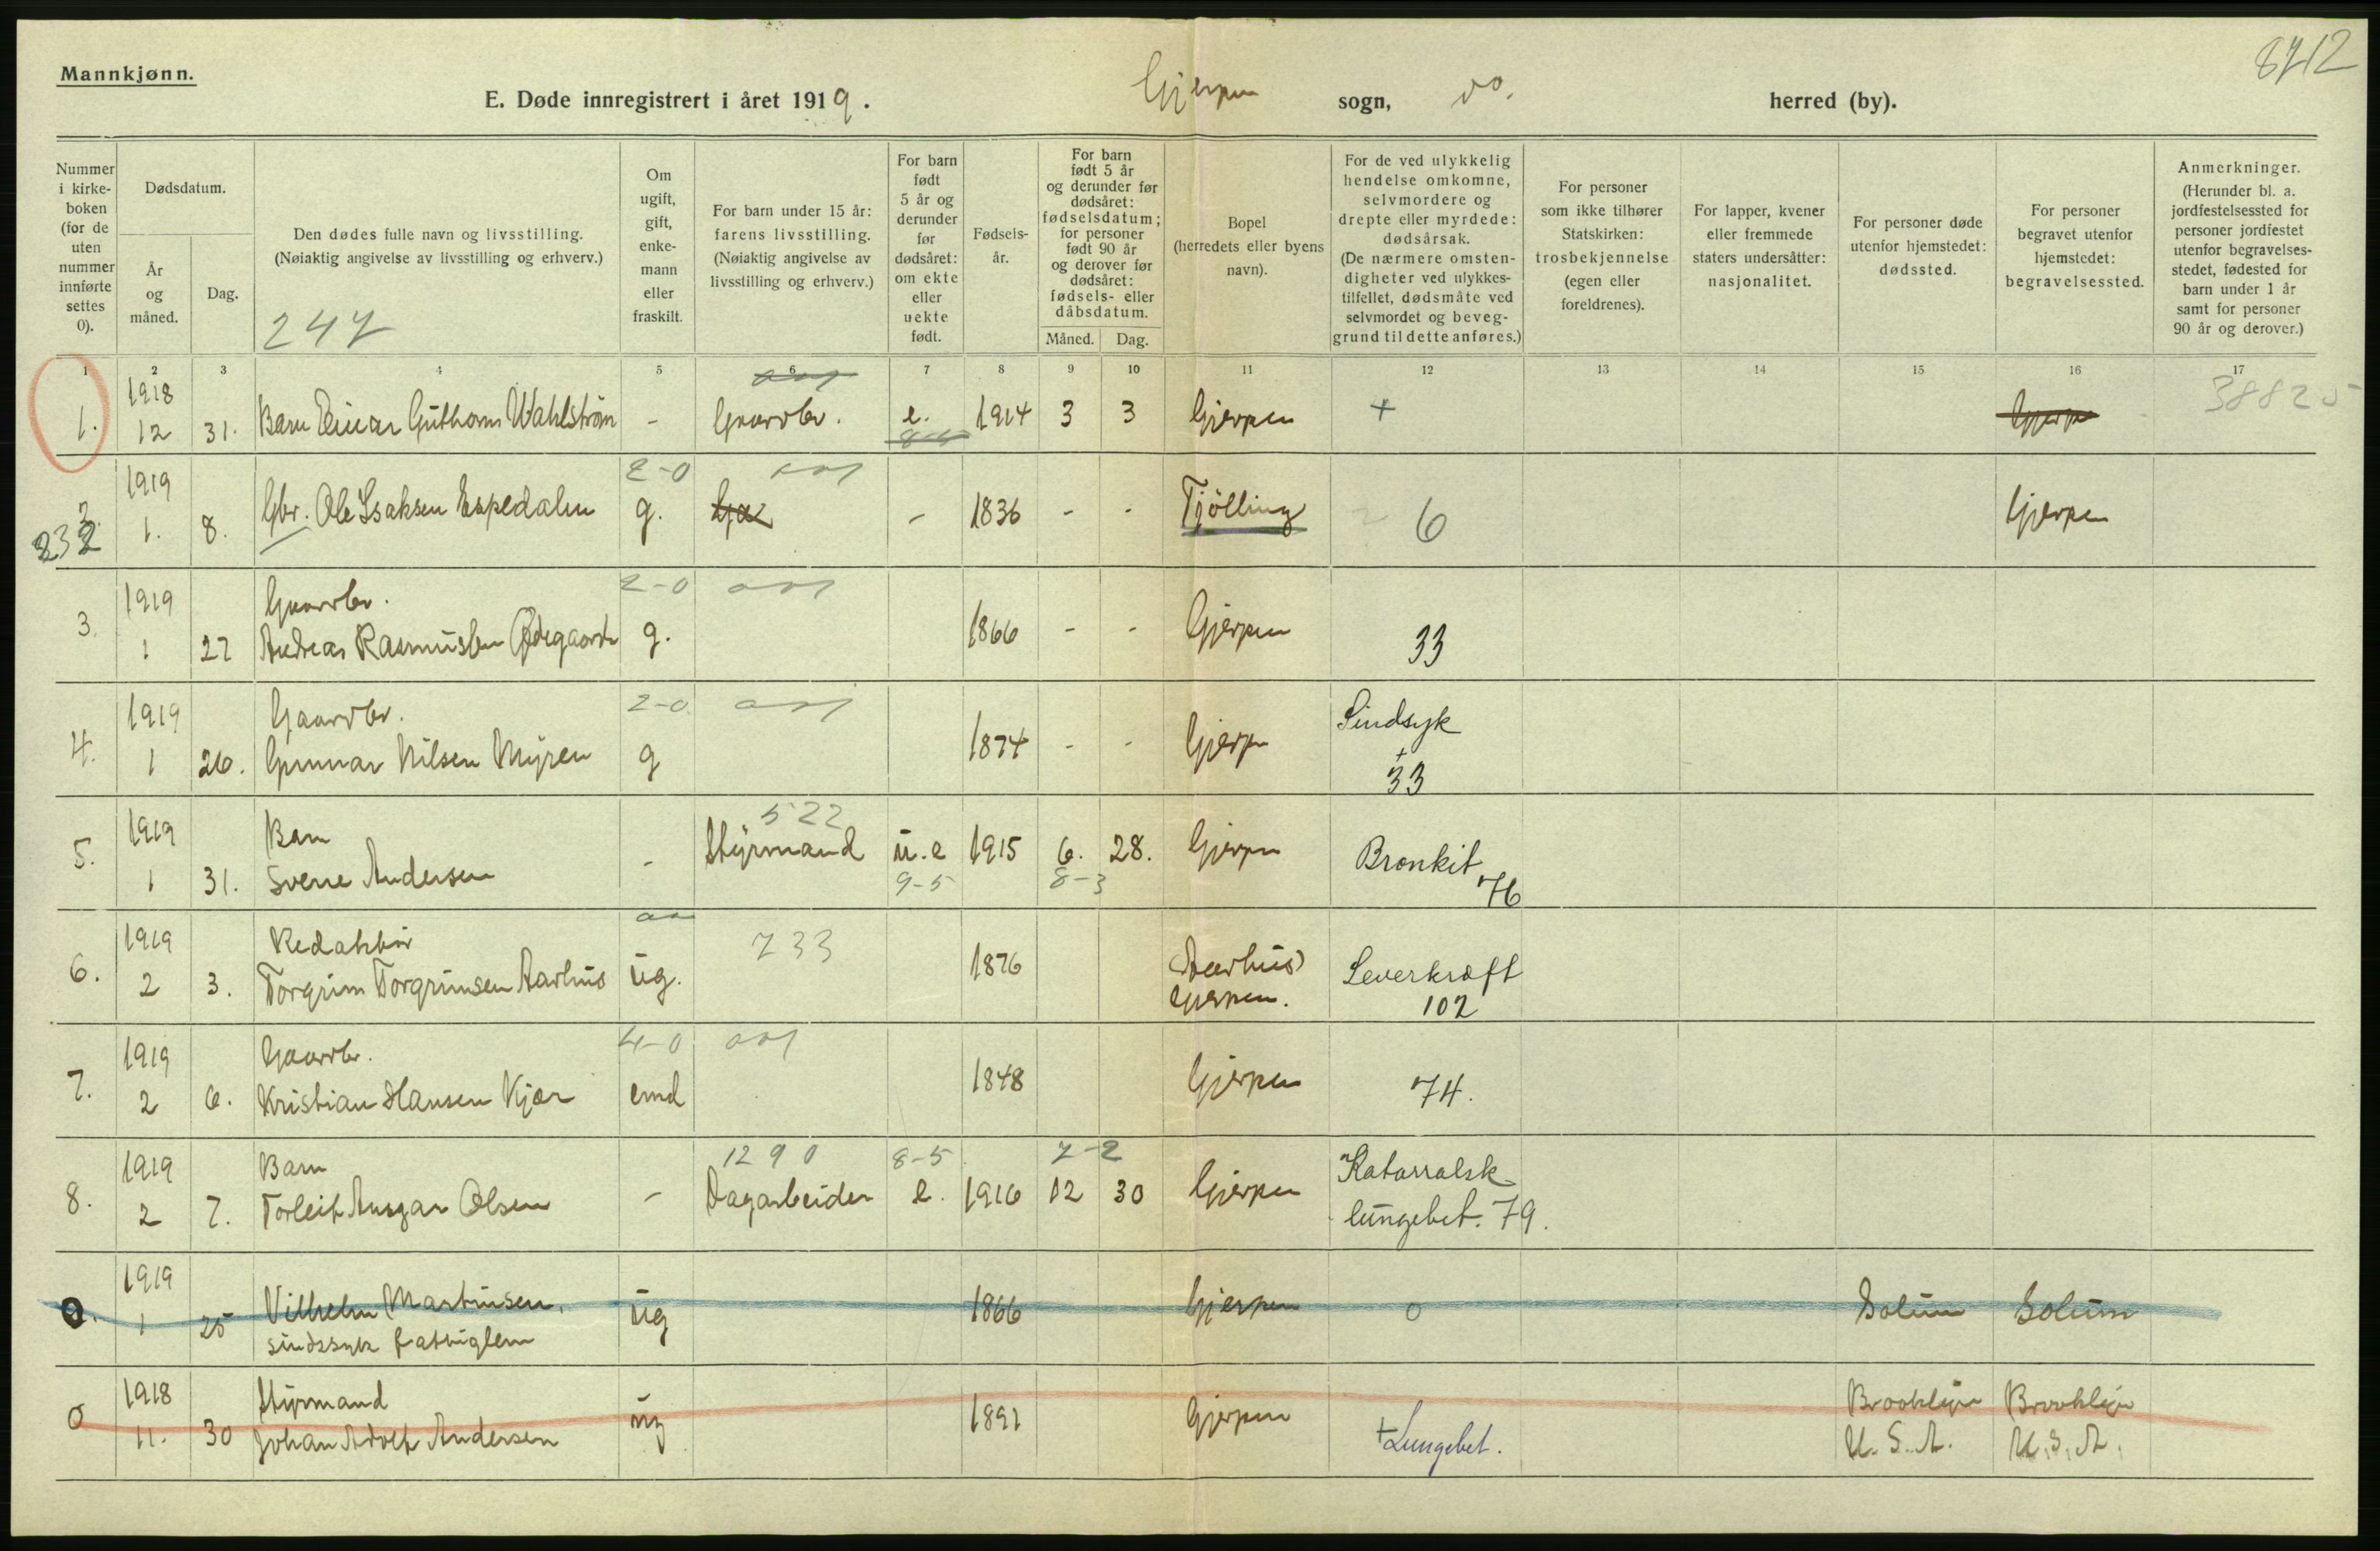 Mannkjønn.
8212
E. Døde innregistrert i året 1919. Gjerpen sogn, do. herred (by).
Nummer i kirkeboken (for de uten nummer innførte settes 0).
Dødsdatum.
År og måned.
Dag.
Den dødes fulle navn og livsstilling.
(Nøiaktig angivelse av livsstilling og erhverv.)
247
Om ugift, gift, enkemann eller fraskilt.
For barn under 15 år: farens livsstilling. (Nøiaktig angivelse av livsstilling og erhverv.)
For barn født 5 år og derunder før dødsåret: om ekte eller uekte født.
Fødselsår.
For barn født 5 år og derunder før dødsåret: fødselsdatum; for personer født 90 år og derover før dødsåret: fødsels- eller dåbsdatum.
Måned. Dag.
Bopel (herredets eller byens navn).
For de ved ulykkelig hendelse omkomne, selvmordere og drepte eller myrdede: dødsårsak. (De nærmere omstendigheter ved ulykkestilfellet, dødsmåte ved selvmordet og beveggrund til dette anføres.)
For personer som ikke tilhører Statskirken: trosbekjennelse (egen eller foreldrenes).
For lapper, kvener eller fremmede staters undersåtter: nasjonalitet.
For personer døde utenfor hjemstedet: dødssted.
For personer begravet utenfor hjemstedet: begravelsessted.
Anmerkninger. (Herunder bl. a. jordfestelsessted for personer jordfestet utenfor begravelsesstedet, fødested for barn under 1 år samt for personer 90 år og derover.)
1 2 3 4 5 6 7 8 9 10 11 12 13 14 15 16 17
1918
1. 12 31. Barn Einar Guthorm Wahlström - Gaardbr. e. 1914 3 3 Gjerpen + Gjerpe 38825
1919 2-0
2. 1. 8. Gbr. Ole Isaksen Espedalen g. - 1836 - - Tjölling 6 Gjerpen
232
1919 Gaardbr. 2-0
3. 1 27 Andreas Rasmussen Ødegaard g. 1866 - - Gjerpen 33
1919 Gaardbr. 2-0 Sindsyk
4. 1 26. Gunnar Nilsen Myren g 1874 - - Gjerpn + 33
1919 Barn 522
5. 1 31. Sverre Andersen - Styrmand u.e 1915 6. 28. Gjerpn Bronkit 76
9-5 8-3
1919 Redaktør 233
6. 2 3. Torgrim Torgrimsen Aarhus ug. 1876 (Aarhus) Gjerpen. Leverkræft 102
1919 Gaardbr. 4-0
7. 2 6. Kristian Hansen Kjær emd 1848 Gjerpen 74.
1919 Barn 1290 8-5 7-2 Katarralsk
8. 2 7. Torleif Ansgar Olsen - Dagarbeider e. 1916 12 30 Gjerpen lungebet. 79.
1919
0. 1 25 Vilhelm Martinsen, ug 1866 Gjerpen 0 Solum Solum
sindssyk fattiglem
1918 Styrmand Brooklyn Brooklyn
0 11. 30 Johan Adolf Andersen ug 1891 Gjerpen + Lungebet. U.S.A. U.S.A.